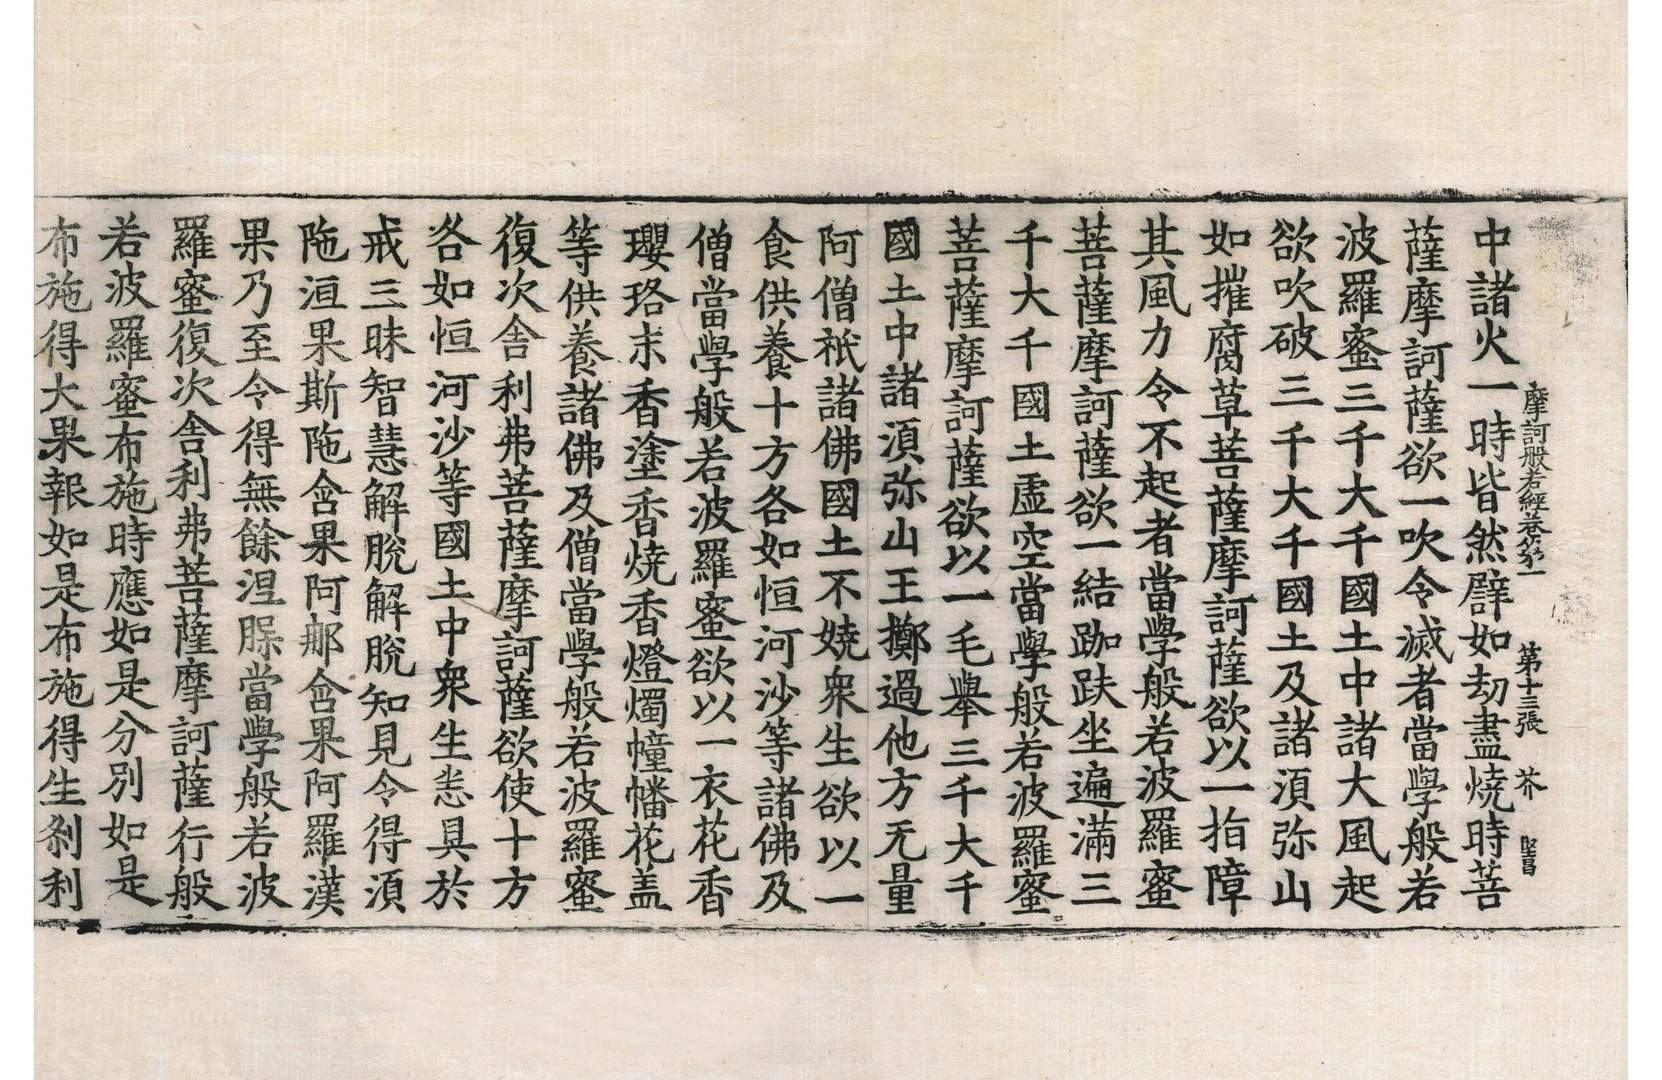 摩訶般若經卷第一 第十三張 芥 堅昌
中諸火一時皆然譬如劫盡燒時菩
薩摩訶薩欲一吹令滅者當學般若
波羅蜜三千大千國土中諸大風起
欲吹破三千大千國土及諸湏弥山
如摧腐草菩薩摩訶薩欲以一指障
其風力令不起者當學般若波羅蜜
菩薩摩訶薩欲一結跏趺坐遍滿三
千大千國土虛空當學般若波羅蜜
菩薩摩訶薩欲以一毛舉三千大千
國土中諸湏弥山王擲過他方无量
阿僧祇諸佛國土不嬈衆生欲以一
食供養十方各如恒河沙等諸佛及
僧當學般若波羅蜜欲以一衣花香
瓔珞末香塗香燒香燈燭幢幡花盖
等供養諸佛及僧當學般若波羅蜜
復次舍利弗菩薩摩訶薩欲使十方
各如恒河沙等國土中衆生悉具於
戒三昧智慧解脫解脫知見令得湏
陁洹果斯陁含果阿那含果阿羅漢
果乃至令得無餘涅槃當學般若波
羅蜜復次舍利弗菩薩摩訶薩行般
若波羅蜜布施時應如是分別如是
布施得大果報如是布施得生剎利